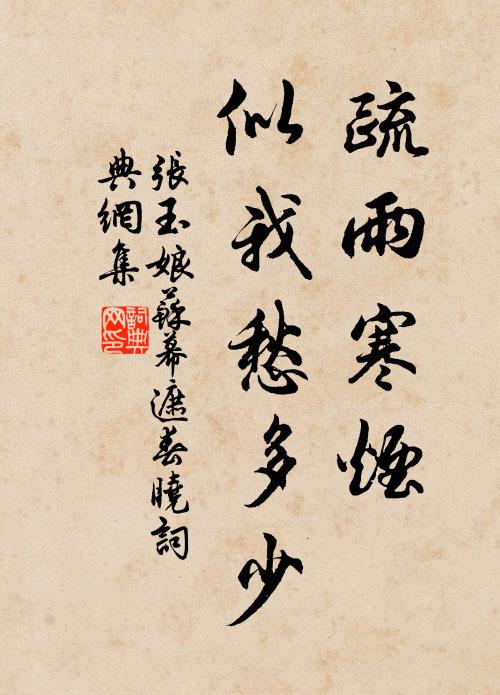 疏雨寒煙
似我愁多少
張玉娘蘇幕遮春曉詞
典網集
詞典網印